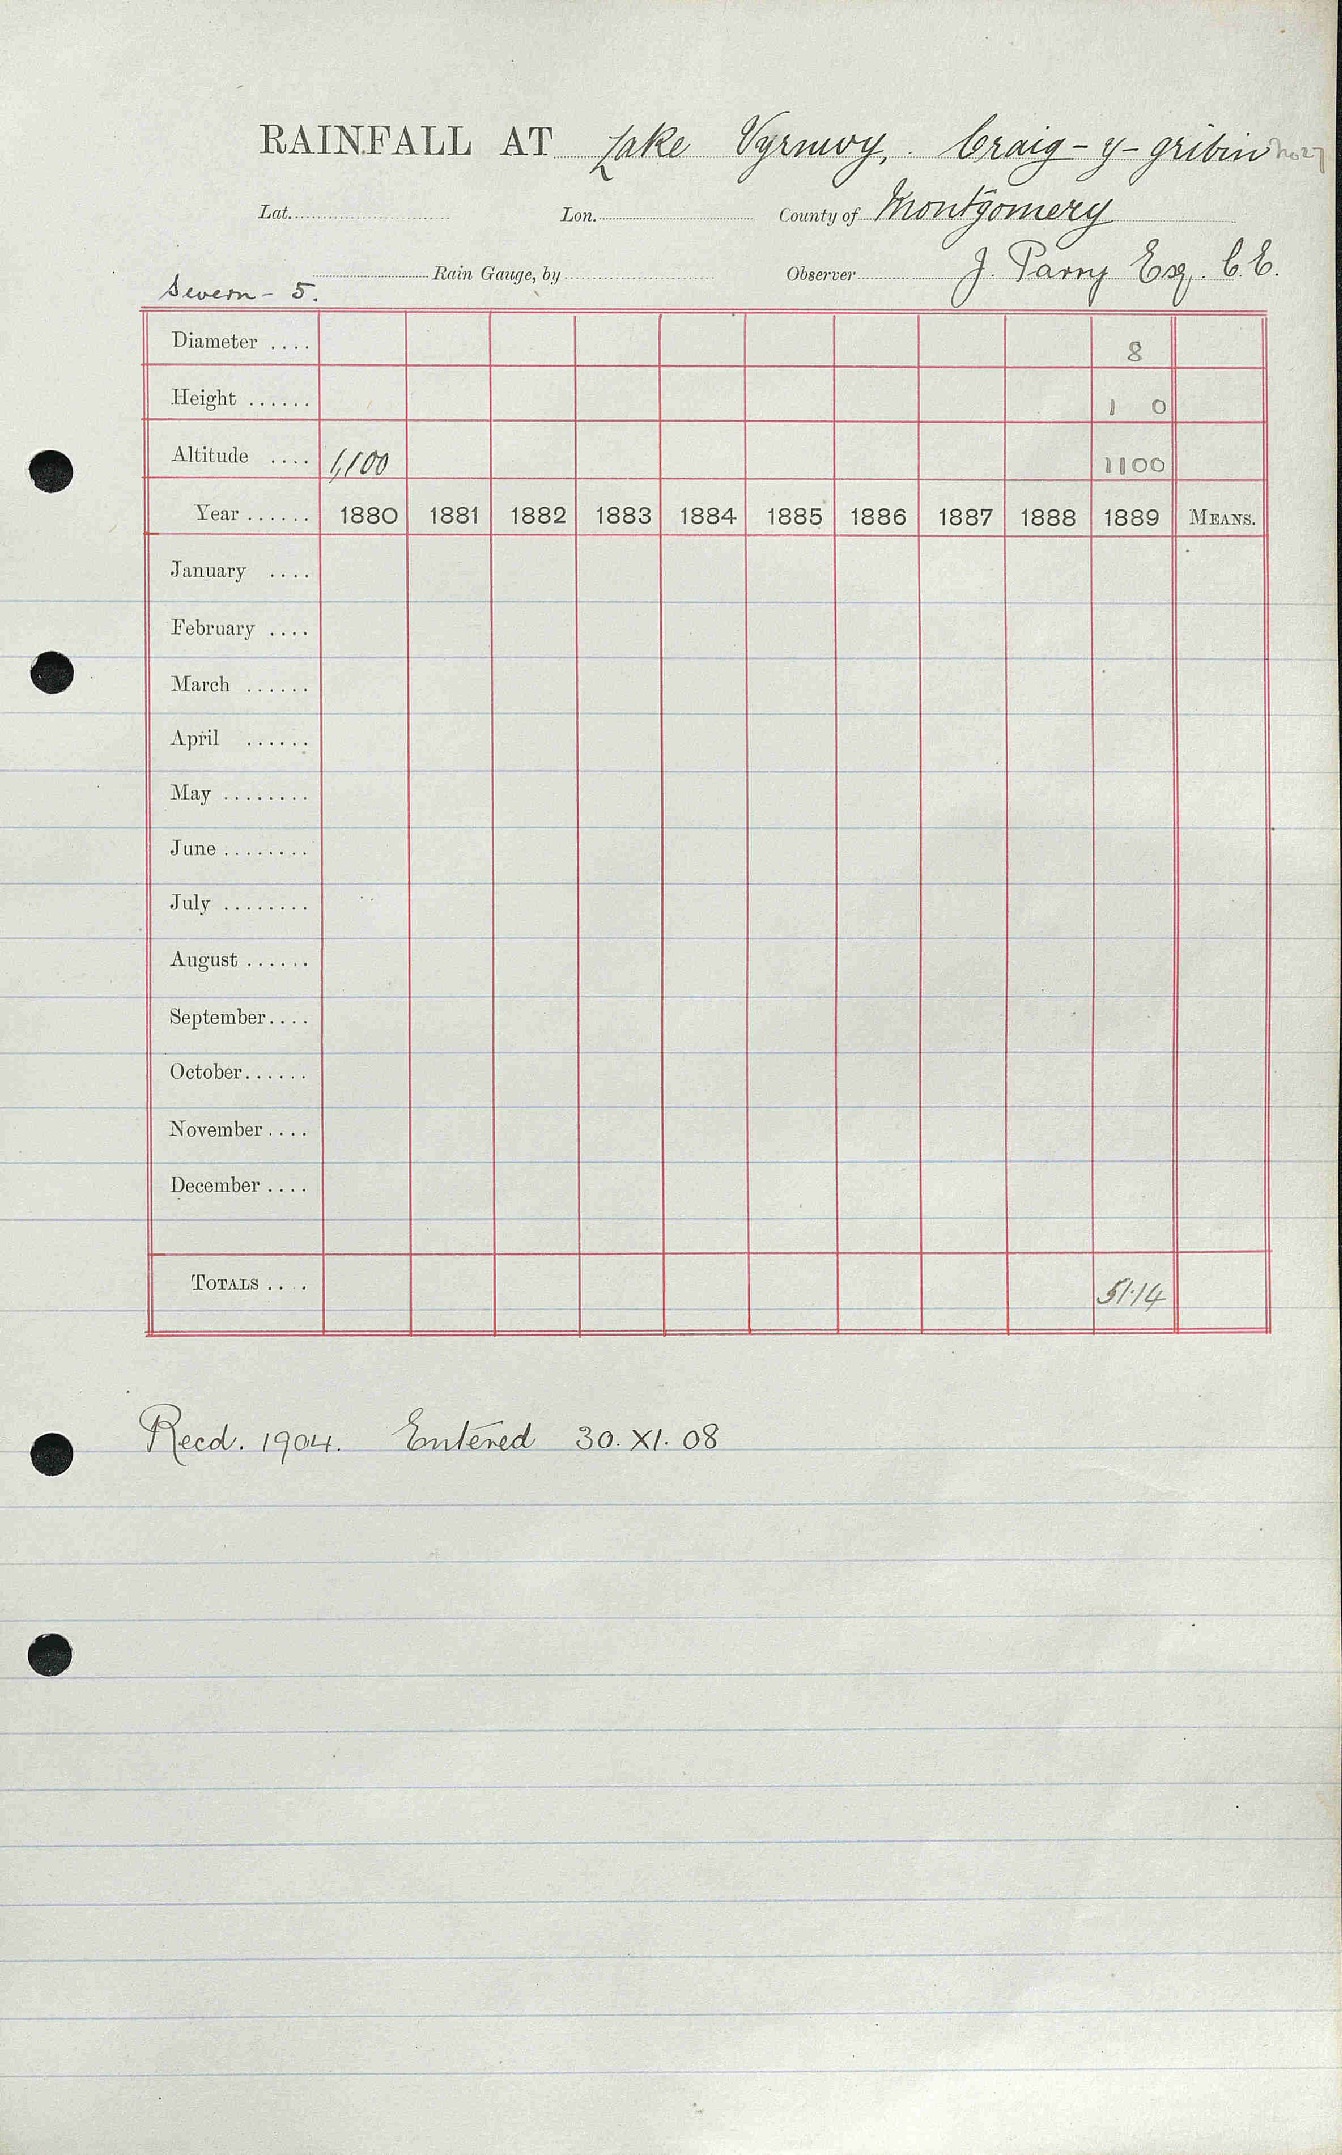 RAINFALL AT Lake Vyrnwy, Craig-y-gribin No 27
Lat. Lon. County of Montgomery
Rain Gauge, by Observer J. Parry Esq. C.E.
Severn - 5.
Diameter .... 8
Height ...... 1 0
Altitude .... 1,100 1100
Year ...... 1880 1881 1882 1883 1884 1885 1886 1887 1888 1889 MEANS.
January ....
February ....
March ......
April ......
May ........
June ........
July ........
August ......
September ....
October ......
November ....
December ....
TOTALS .... 51.14
Recd. 1904. Entered 30. XI. 08